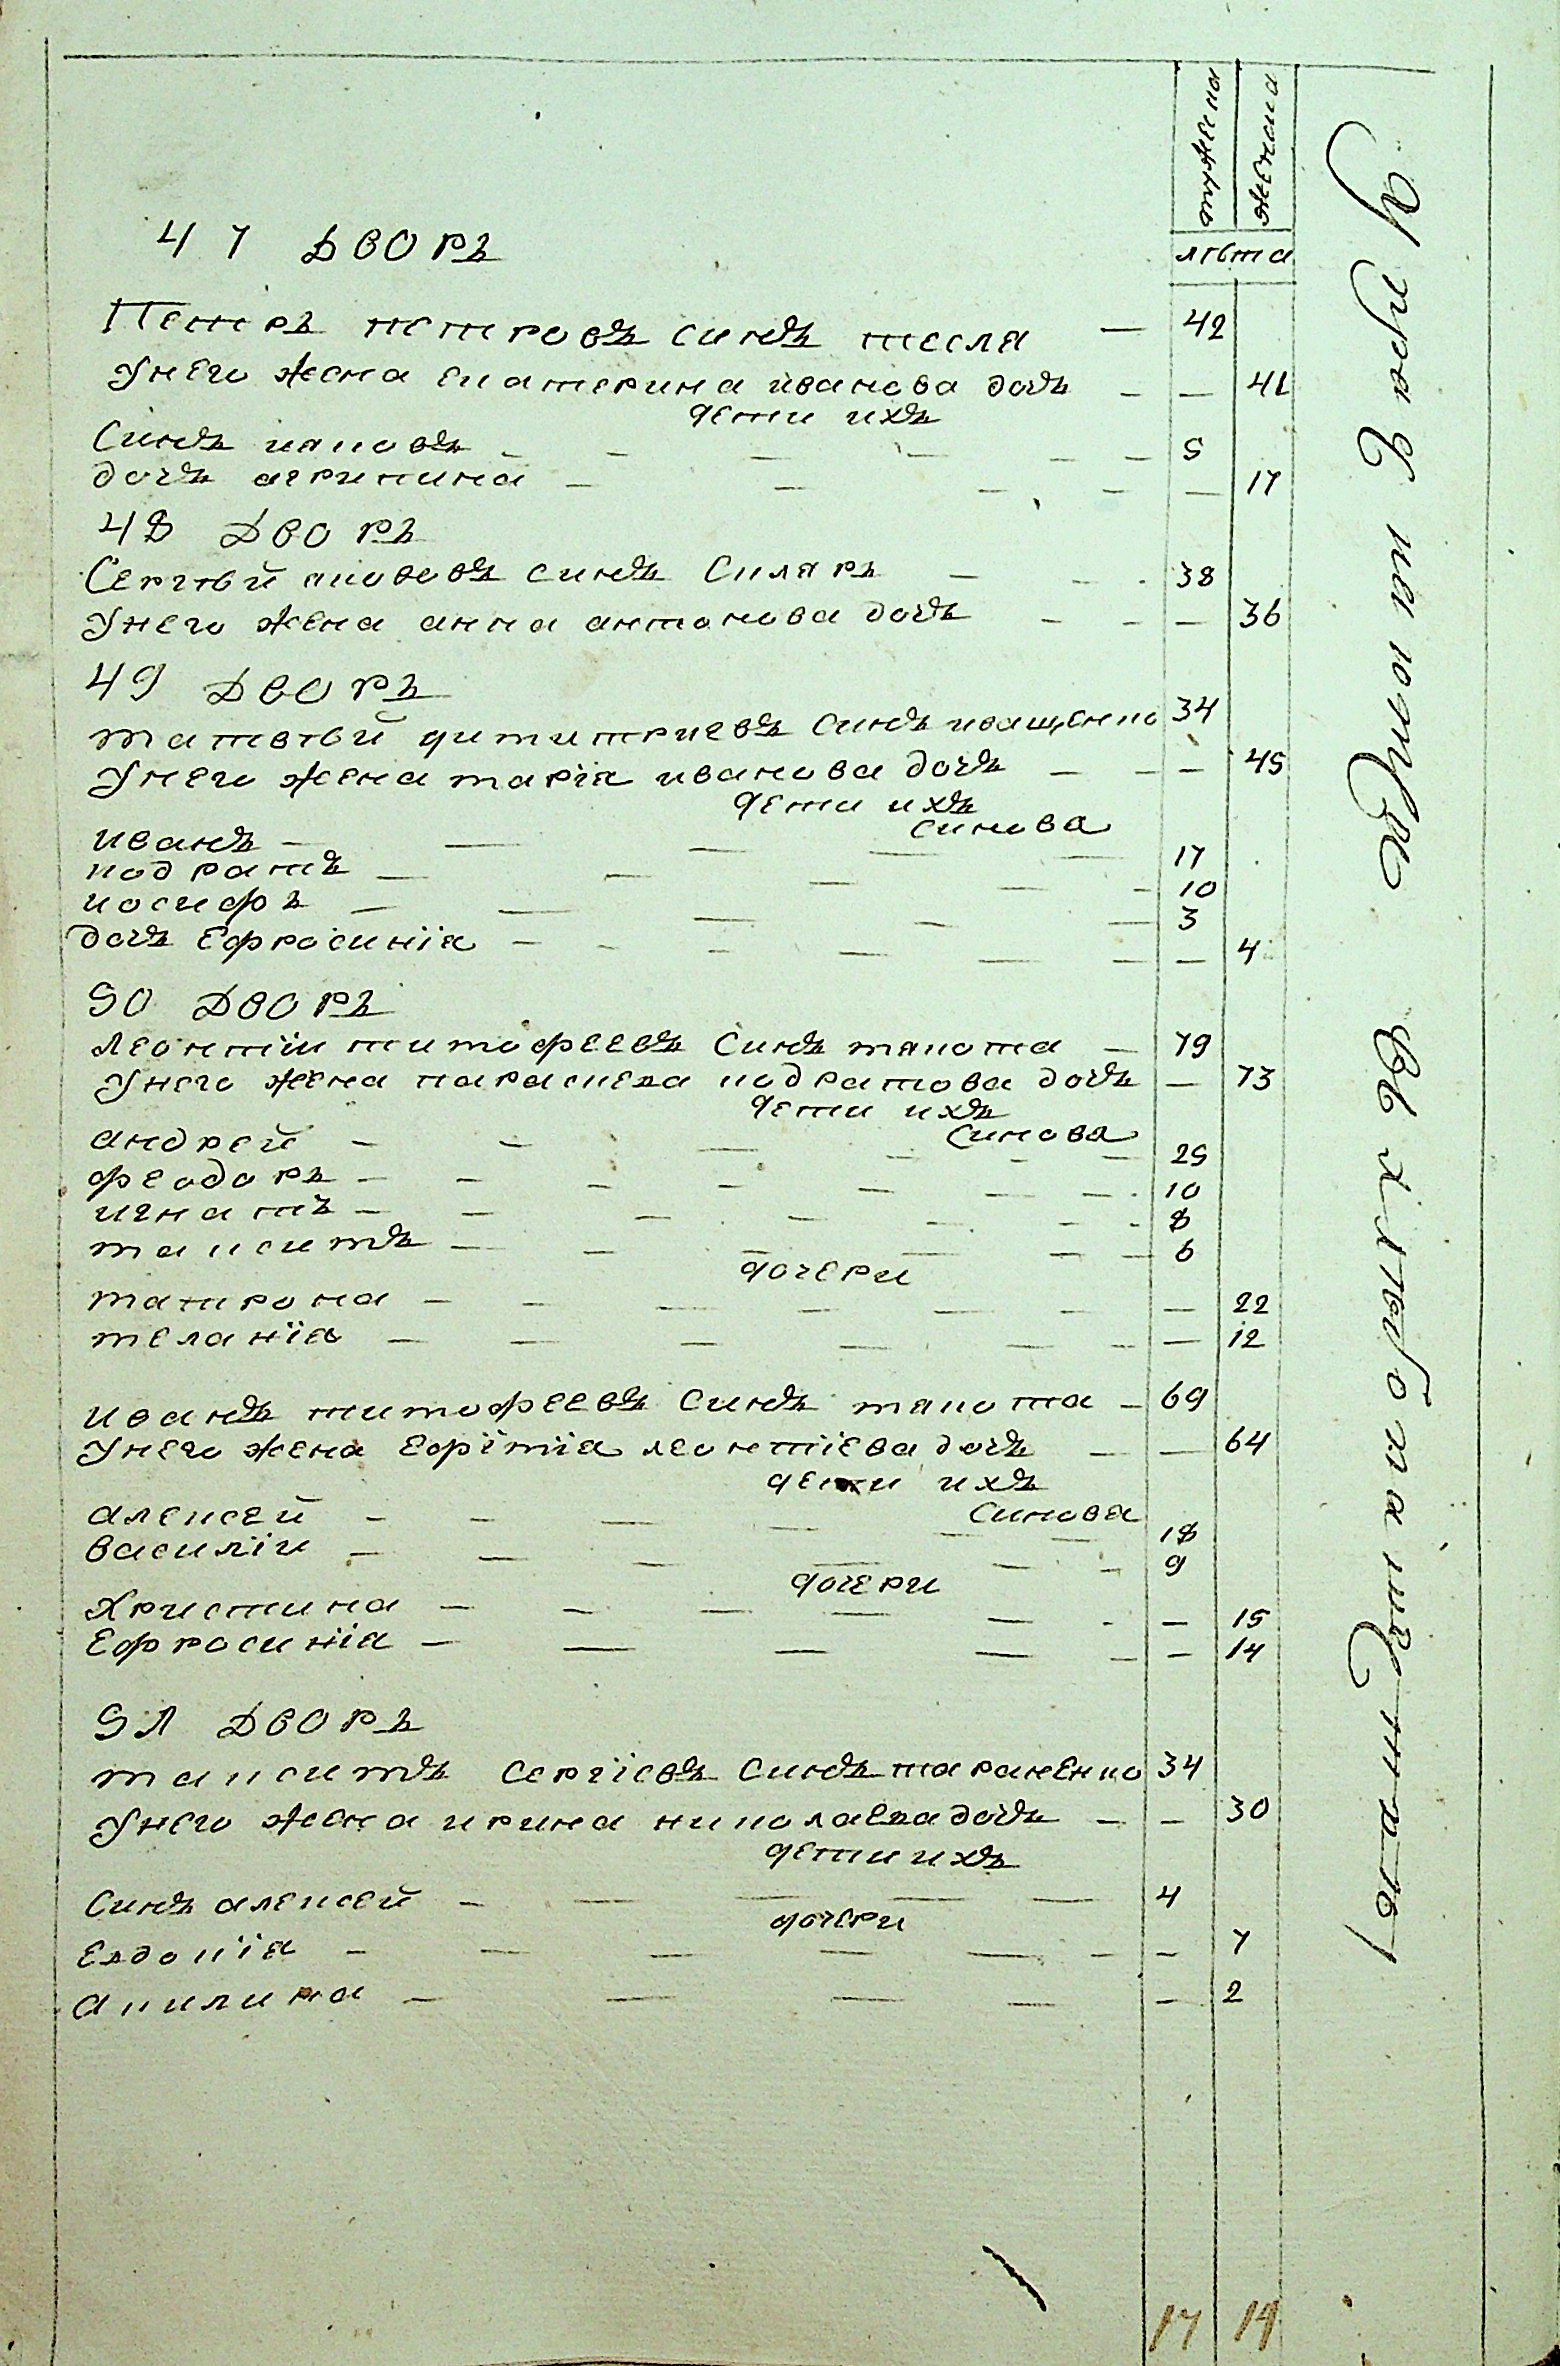 мужеска
женска
лѣта
47 Дворъ
Петръ петровъ синъ тесля — 42
Унего жена екатерина иванова дочъ — — 41
дети ихъ
Синъ яковъ — — — — — — 5
дочъ агрипина — — — — — 17
48 Дворъ
Сергѣй якововъ синъ Скляръ — — 38
Унего жена анна антонова дочъ — — — 36
49 Дворъ
матвѣй димитриевъ синъ иващенко 34
Унего жена марія иванова дочъ — — — 45
дети ихъ
синова
иванъ — — — — — 17
кодратъ — — — — — 10
иосифъ — — — — — 3
дочъ Ефросинія — — — — — — — 4
50 Дворъ
леонтіи тимофеевъ синъ макота — 79
Унего жена параскева кодратова дочъ — 73
дети ихъ
синова
андрей — — — — — — 25
феодоръ — — — — — — — 10
игнатъ — — — — — — — 8
максимъ — — — — — — 6
дочери
матрона — — — — — — — 22
меланія — — — — — — — 12
иванъ тимофеевъ синъ макота — 69
Унего жена Ефімія леонтіева дочъ — — 64
дети ихъ
синова
алексей — — — — — — 18
василіи — — — — — — 9
дочери
Христина — — — — — — — 15
Ефросинія — — — — — — 14
51 Дворъ
максимъ сергіевъ синъ тараненко 34
Унего жена ирина николаева дочъ — — 30
дети ихъ
синъ алексей — — — — — 4
дочери
Евдокія — — — — — — — 7
акилина — — — — — 2
17 14